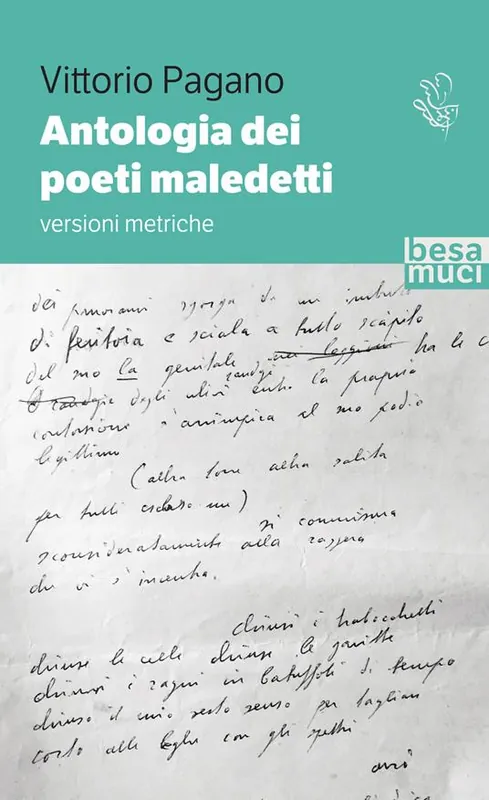 Vittorio Pagano
Antologia dei
poeti maledetti
versioni metriche
besa
muci
dei panorami sgorga da un imbuto
di feritoia e sciala a tutto scapito
del suo la genitale, ha le
degli ulivi entro la propria
contorsione s'arrampica al suo podio
legittimo
(altra altra salita
per tutti escluso me)
si commisura
sconsideratamente alla zazzera
che vi s'incentra.
chiusi i trabocchetti
chiuse le celle chiuse le garitte
chiusi i ragni in batuffoli di tempo
chiuso il mio sesto senso per tagliar
corto alle beghe con gli spettri